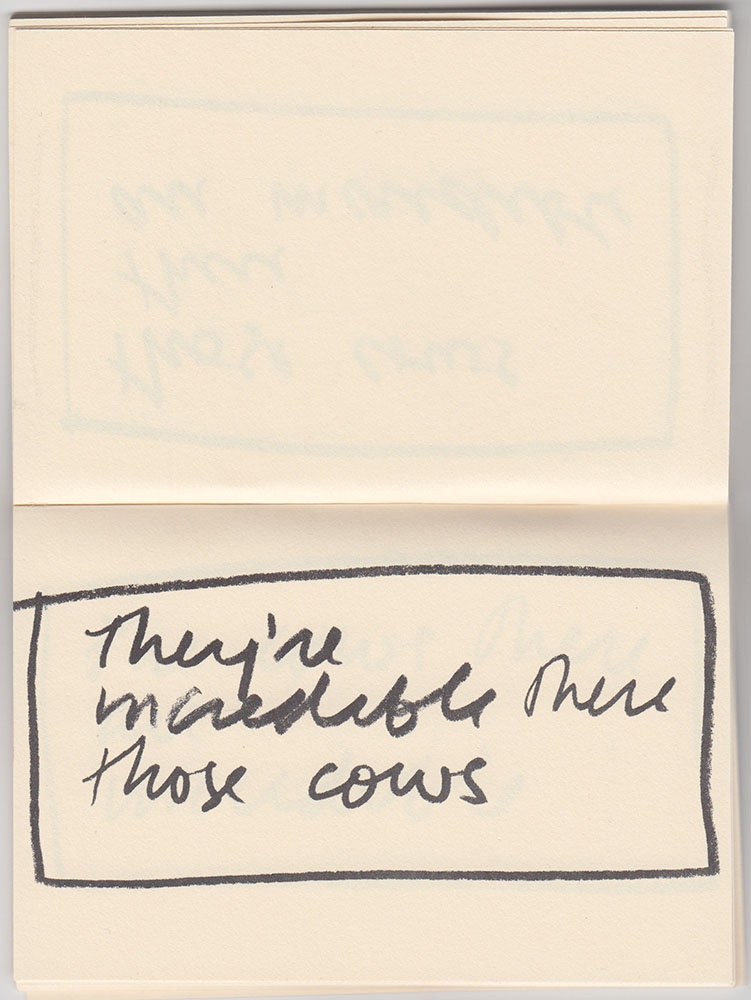 They're
incredible there
those cows